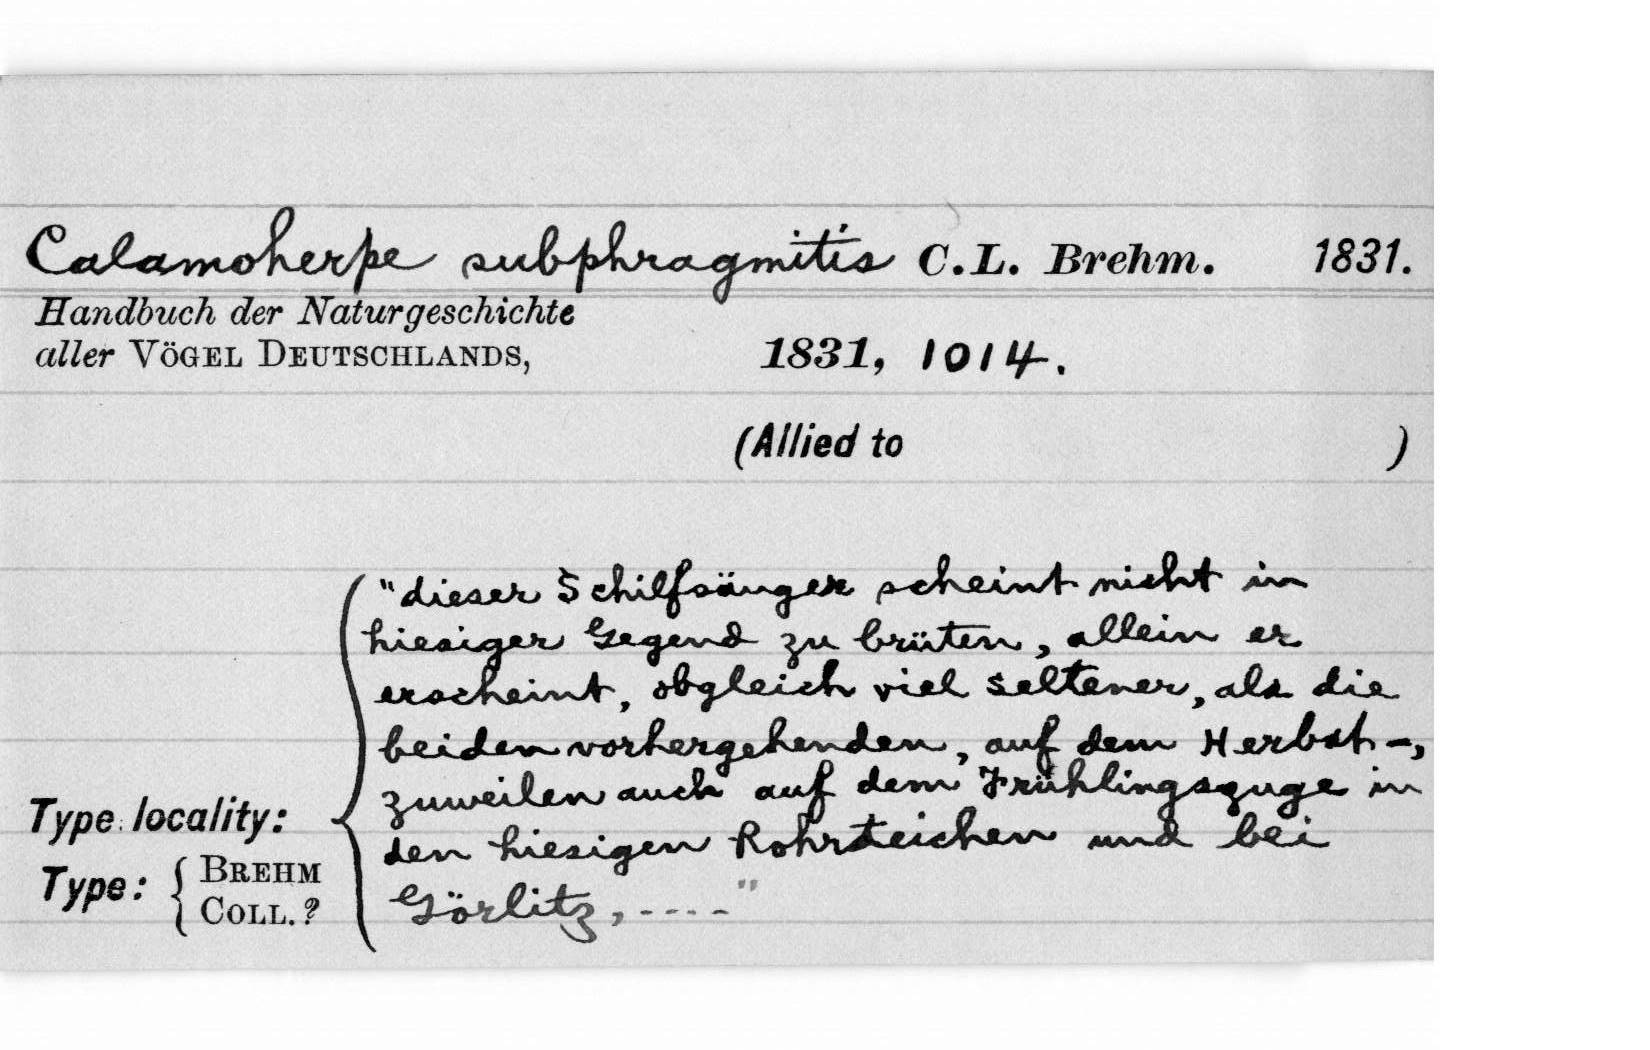 Calamoherpe subphragmitis C.L. Brehm. 1831.
Handbuch der Naturgeschichte
aller VÖGEL DEUTSCHLANDS, 1831, 1014.
(Allied to )
"dieser Schilfsänger scheint nicht in
hiesiger Gegend zu brüten, allein er
erscheint, obgleich viel seltener, als die
beiden vorhergehenden, auf dem Herbst-,
zuweilen auch auf dem Frühlingszuge in
den hiesigen Rohrteichen und bei
Görlitz, ----"
Type locality:
Type: { BREHM
COLL. ?